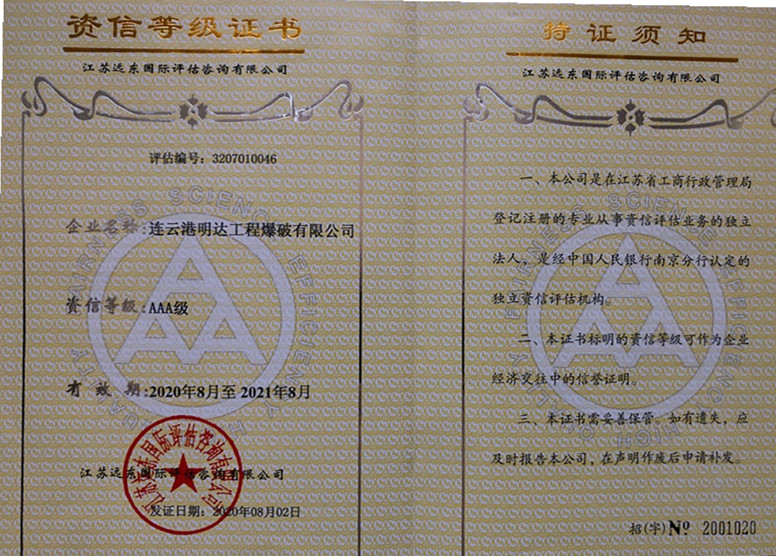 资信等级证书
江苏远东国际评估咨询有限公司
评估编号：3207010046
企业名称：连云港明达工程爆破有限公司
资信等级：AAA级
有效期：2020年8月至2021年8月
江苏远东国际评估咨询有限公司
发证日期：2020年08月02日
江苏远东国际评估咨询有限公司
AAA
FAIRNESS SCIENCE EFFICIENCY
QUALITY
持证须知
江苏远东国际评估咨询有限公司
一、本公司是在江苏省工商行政管理局
登记注册的专业从事资信评估业务的独立
法人，是经中国人民银行南京分行认定的
独立资信评估机构。
二、本证书标明的资信等级可作为企业
经济交往中的信誉证明。
三、本证书需妥善保管。如有遗失，应
及时报告本公司，在声明作废后申请补发。
招(字)No 2001020
AAA
FAIRNESS SCIENCE EFFICIENCY
HIGH QUALITY